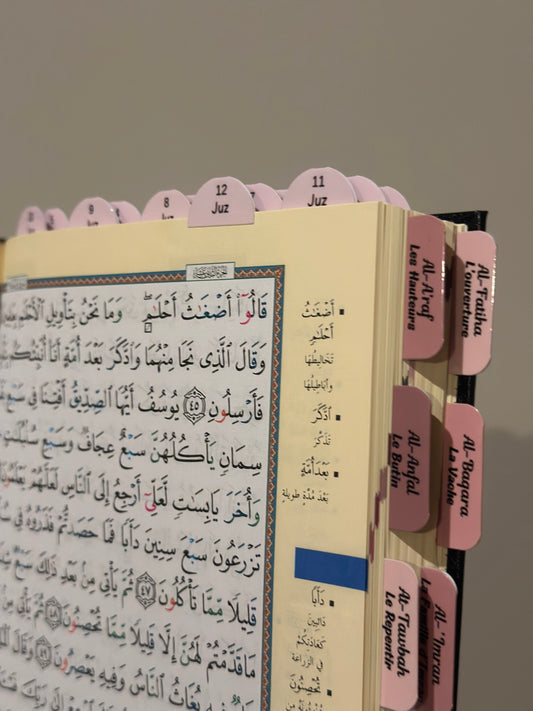 11
Juz
12
Juz
8
Juz
9
Juz
Al-A'raf
Les Hauteurs
Al-Fatiha
L'ouverture
Al-Anfal
Le Butin
Al-Baqara
La Vache
Al-Tawbah
Le Repentir
Al-'Imran
La Famille d'Imran
قَالُوٓا۟ أَضْغَٰثُ أَحْلَٰمٍ ۖ وَمَا نَحْنُ بِتَأْوِيلِ ٱلْأَحْلَٰمِ
وَقَالَ ٱلَّذِى نَجَا مِنْهُمَا وَٱدَّكَرَ بَعْدَ أُمَّةٍ أَنَا۠ أُنَبِّئُكُم
فَأَرْسِلُونِ ٤٥ يُوسُفُ أَيُّهَا ٱلصِّدِّيقُ أَفْتِنَا فِى سَبْعِ
سِمَانٍ يَأْكُلُهُنَّ سَبْعٌ عِجَافٌ وَسَبْعِ سُنۢبُلَٰتٍ
وَأُخَرَ يَابِسَٰتٍ لَّعَلِّىٓ أَرْجِعُ إِلَى ٱلنَّاسِ لَعَلَّهُمْ يَعْلَمُونَ
تَزْرَعُونَ سَبْعَ سِنِينَ دَأَبًا فَمَا حَصَدتُّمْ فَذَرُوهُ فِى
قَلِيلًا مِّمَّا تَأْكُلُونَ ٤٧ ثُمَّ يَأْتِى مِنۢ بَعْدِ ذَٰلِكَ سَبْعٌ
مَا قَدَّمْتُمْ لَهُنَّ إِلَّا قَلِيلًا مِّمَّا تُحْصِنُونَ ٤٨ ثُمَّ يَأْتِى مِنۢ
يُغَاثُ ٱلنَّاسُ وَفِيهِ يَعْصِرُونَ ٤٩ وَقَالَ
أَضْغَٰثُ
أَحْلَٰمٍ
تَخَالِيطُهَا
وَأَبَاطِيلُهَا
ٱدَّكَرَ
تَذَكَّرَ
بَعْدَ أُمَّةٍ
بَعْدَ مُدَّةٍ طَوِيلَةٍ
دَأَبًا
دَائِبِينَ
كَعَادَتِكُمْ
فِي الزِّرَاعَةِ
تُحْصِنُونَ